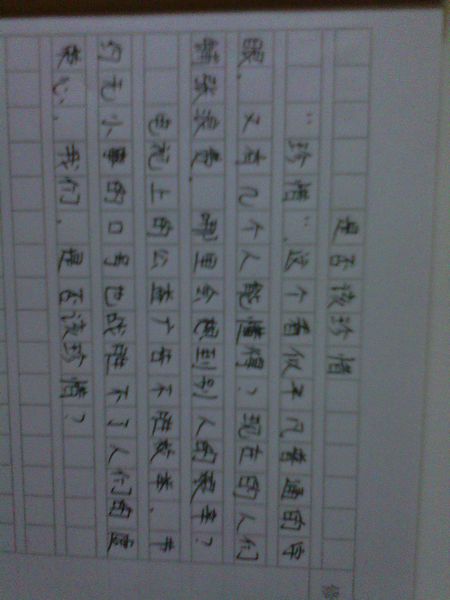 是否该珍惜
“珍惜”,这个看似平凡普通的字
眼,又有几个人能懂得?现在的人们
铺张浪费,哪里会想到别人的艰辛?
电视上的公益广告不胜枚举,节
约无小事的口号也战胜不了人们的虚
荣心,我们,是否该珍惜?